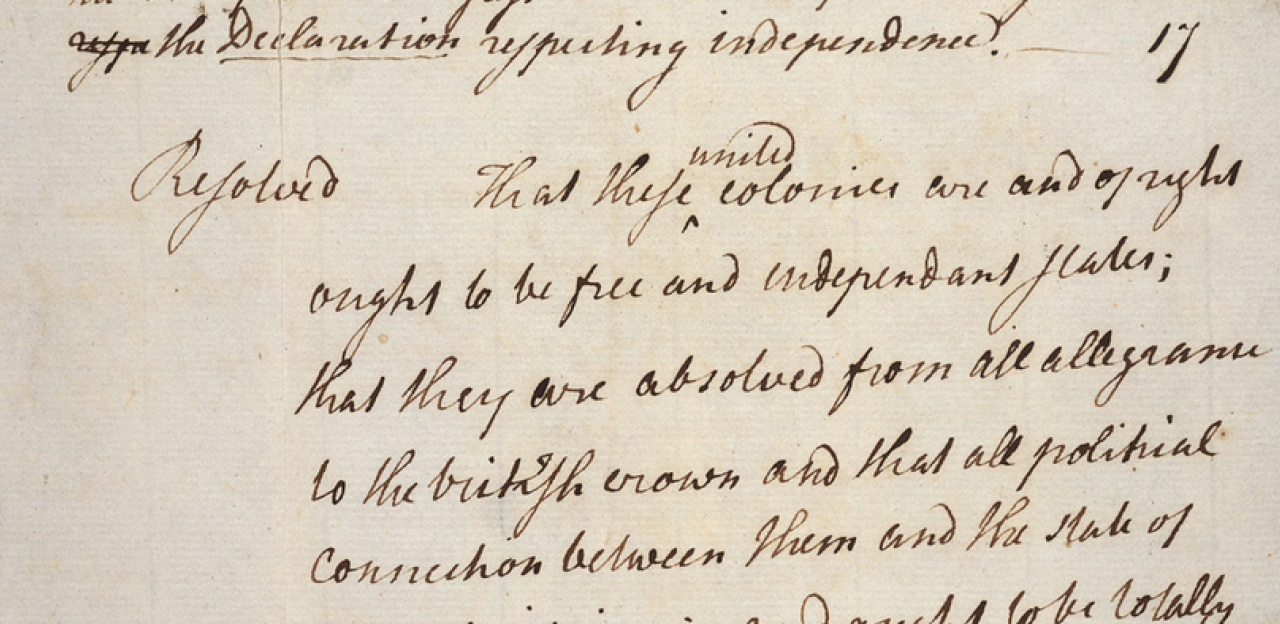 the Declaration respecting independence. — 17
united
Resolved That these ^ colonies are and of right
ought to be free and independant states;
that they are absolved from all allegiance
to the british crown and that all political
connection between them and the state of
ought to be totally